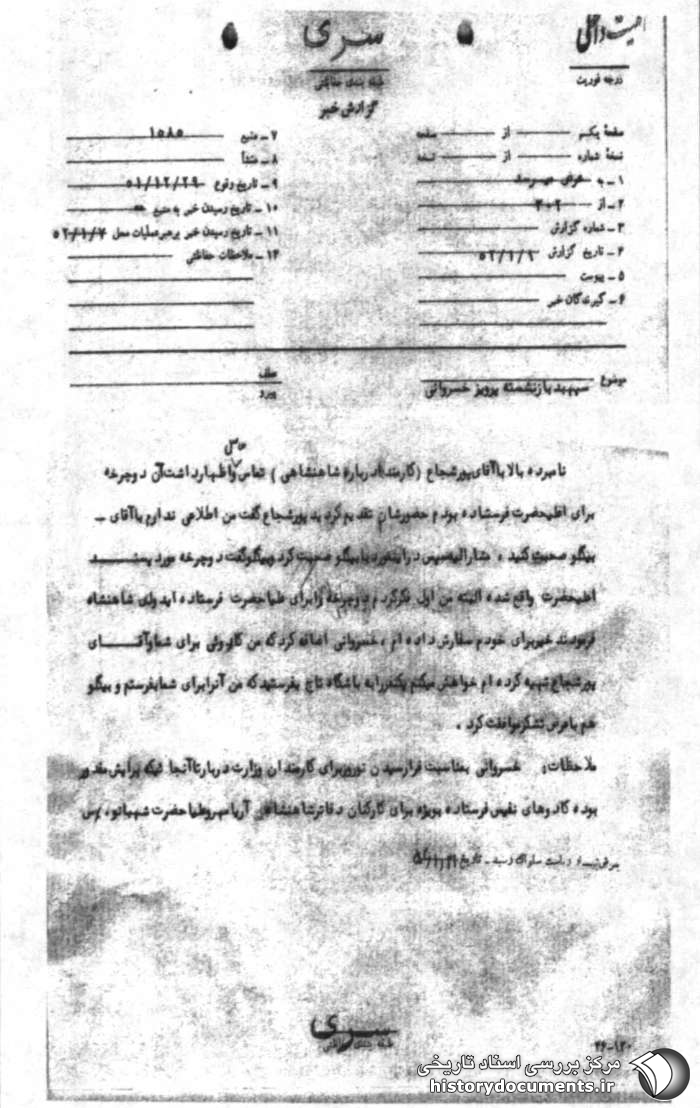 سری
درجه فوریت
طبقه بندی حفاظتی
گزارش خبر
صفحهٔ یکم از صفحه
نسخهٔ شماره از نسخه
۱ ـ به
۲ ـ از ۳۰۲
۳ ـ شماره گزارش
۴ ـ تاریخ گزارش
۵ ـ پیوست
۶ ـ گیرندگان خبر
۷ ـ منبع ۱۵۸۵
۸ ـ منشأ
۹ ـ تاریخ وقوع ۵۱/۱۲/۲۹
۱۰ ـ تاریخ رسیدن خبر به منبع
۱۱ ـ تاریخ رسیدن خبر برهبر عملیات محل
۱۲ ـ ملاحظات حفاظتی
موضوع سپهبد بازنشسته پرویز خسروانی
عطف
پیرو
نامبرده بالا با آقای پورشجاع (کارمند دربار شاهنشاهی) تماس حاصل و اظهار داشت آن دوچرخه
برای اعلیحضرت فرستاده بودم حضورشان تقدیم کردید پورشجاع گفت من اطلاعی ندارم با آقای ـ
بیگلو صحبت کنید ، مشارالیه سپس در اینمورد با بیگلو صحبت کرد و بیگلو گفت دوچرخه مورد پسند
اعلیحضرت واقع شده البته من اول فکر کردم دوچرخه را برای علیاحضرت فرستاده اید ولی شاهنشاه
فرمودند خیر برای خودم سفارش داده ام ، خسروانی اضافه کرد که من کادوئی برای شما و آقای
پورشجاع تهیه کرده ام خواهش میکنم یکنفر را به باشگاه تاج بفرستید که من آنرا برای شما بفرستم و بیگلو
هم با عرض تشکر موافقت کرد .
ملاحظات: خسروانی بمناسبت فرارسیدن نوروز برای کارمندان وزارت دربار تا آنجا ئیکه برایش مقدور
بوده کادوهای نفیس فرستاده بویژه برای کارکنان دفاتر شاهنشاه آریامهر و علیاحضرت شهبانو .
ریاست ساواک رسید ـ تاریخ
سری
طبقه بندی حفاظتی
۲۶-۱۲۰
مرکز بررسی اسناد تاریخی
historydocuments.ir